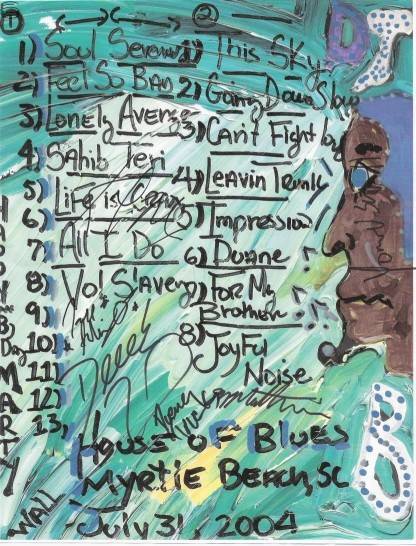 1
2
1) Soul Serenade
2) Feel So Bad
3) Lonely Avenue
4) Sahib Teri
5) Life is Crazy
6) All I Do
7) Vol Slavery
8)
9)
10)
11)
12)
13,
1) This Sky
2) Going Down Slow
3) Can't Fight
4) Leavin Trunk
5) Impression
6) Duane
7) For My
Brother
8) Joyful
Noise
HAPPY
B Day
MARTY
WALL
DTB
Derek
House of Blues
Myrtle Beach, SC
July 31, 2004